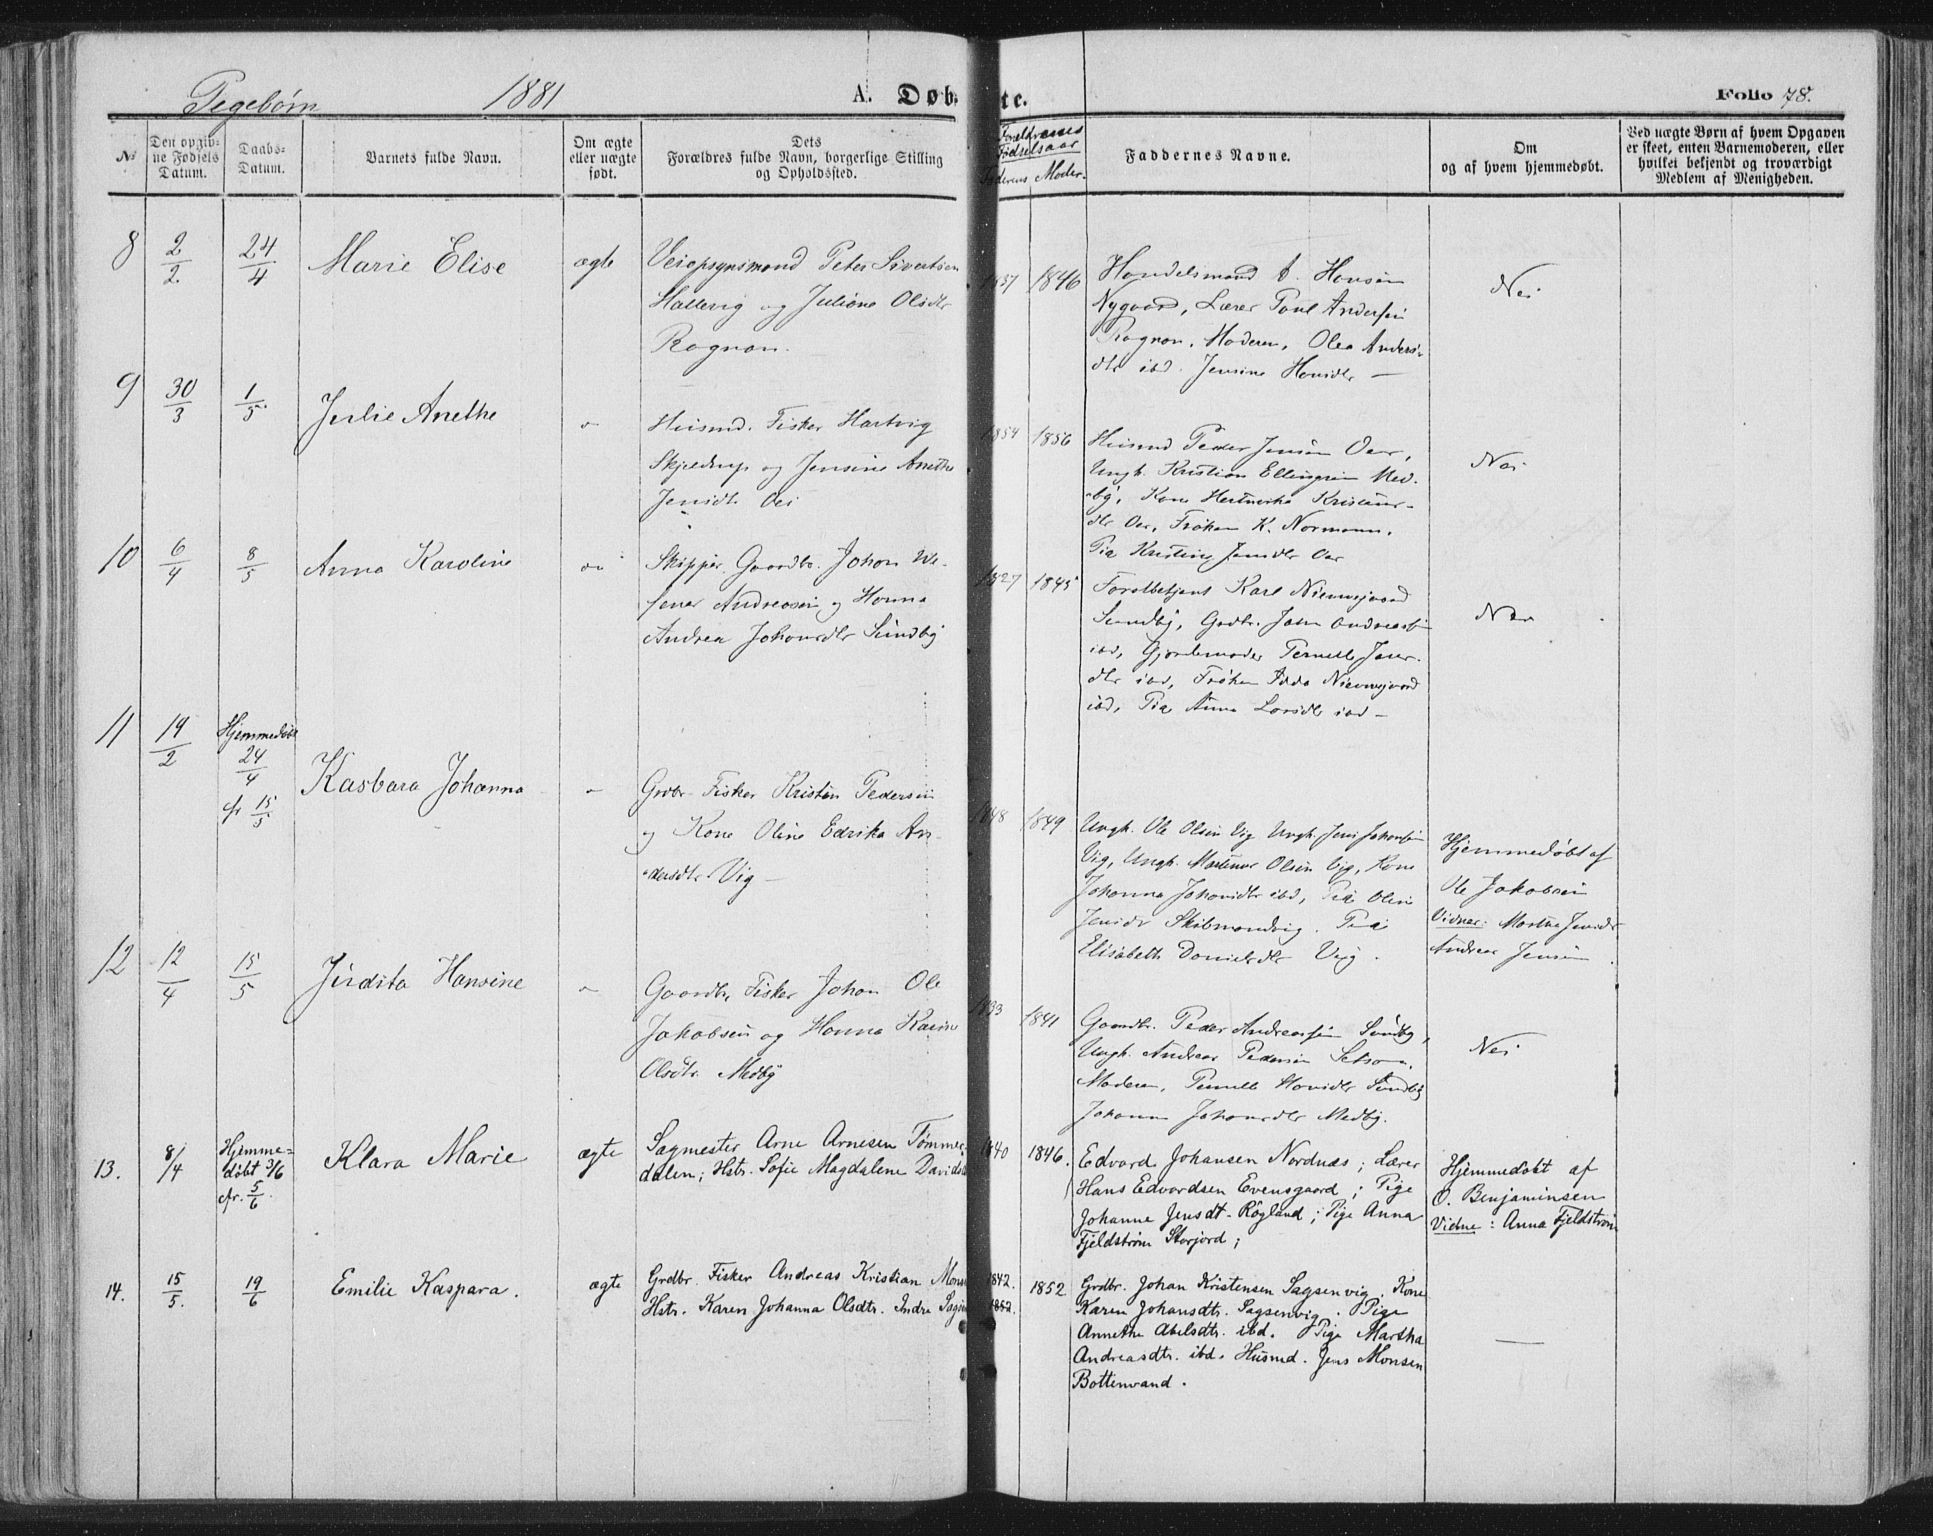 Pigebørn 1881 A. Døbte. Folio 78.
No
Den opgivne Fødsels Datum.
Daabs-Datum.
Barnets fulde Navn.
Om ægte eller uægte født.
Dets Forældres fulde Navn, borgerlige Stilling og Opholdssted.
Forældrenes Fødselsaar
Faderens Moder.
Faddernes Navne.
Om og af hvem hjemmedøbt.
Ved uægte Børn af hvem Opgaven er skeet, enten Barnemoderen, eller hvilket bekjendt og troværdigt Medlem af Menigheden.
8 2/2 24/4 Marie Elise ægte
Veiopsynsmand Peter Sivertsen
og Juliane Olsdtr
Rognan.
1837 1846
Handelsmand A. Hansen
Nygaard, Lærer Paul Andersen
Rognan, Moderen, Olea Anders-
dtr ibd. Jensine Hansdtr
Nei
9 30/3 1/5 Julie Anethe
Husmd. Fisker Hartvig
Skjeldrup og Jensine Anethe
Jensdtr. Oei
1854 1856
Husmd Peder Jensen Oer,
Ungk. Kristian Ellingsen Med-
by, Kone
dtr Oer, Frøken K. Normann,
Pia Kristine Jensdtr Oer
Nei
10 6/4 8/5 Anna Karoline
Skipper Gaardbr. Johan
Andreasen og Hanna
Andrea Johansdtr Sundby
1827 1845
Forstbetjent Karl
Sundby, Grdbr. Andreasen
ibd, Gjordemoder Pernelle
dtr ibd, Frøken
ibd, Pia Anna Larsdtr ibd
Nei
11 19/2 Hjemmedøbt
24/4
fr 15/5
Kasbara Johanna
Grdbr. Fisker Kristen Pedersen
og Kone Oline Edrika An-
dersdtr Vig
1848 1849
Ungk. Ole Olsen Vig Ungk. Jens Johansen
Vig, Ungk. Martinus Olsen Vig, Kone
Johanna Johansdtr ibd, Pia Oline
Jensdr Skibmandvig. Pia
Elisabeth Danielsdtr Vig.
Hjemmedøbt af
Ole Jakobsen
Vidner: Marthe Jensdr
Andreas Jensen
12 12/4 15/5 Judita Hansine
Gaardbr, Fisker Johan Ole
Jakobsen og Hanna Karine
Olsdtr. Medby
1833 1841
Gaardbr. Peder Andreassen Sundby,
Ungk. Andreas Pedersen Setsaa,
Moderen, Pernelle Hansdtr Sundby
Johanna Johansdtr Medby.
Nei
13. 8/4 Hjemme-
døbt 3/6
fr. 5/6
Klara Marie ægte
Sagmester Arne Arnesen Tømmer-
dalen; Hstr. Sofie Magdalene Davidsd
1840 1846.
Edvard Johansen Nordnæs; Lærer
Hans Edvardsen Evensgaard; Pige
Johanne Jensdt. Røgland; Pige Anna
Fjeldstrøm Storjord;
Hjemmedøbt af
O. Benjaminsen
Vidne: Anna Fjeldstrøm
14. 15/5. 19/6 Emilie Kaspara. ægte
Grdbr. Fisker Andreas Kristian Mons
Hstr. Karen Johanna Olsdtr. Indre Sagen
1842. 1852
1852.
Grdbr. Johan Kristensen Sagsenvig. Kone
Karen Johansdtr. Sagsenvig. Pige
Annethe Abelsdtr. ibd. Pige Martha
Andreasdtr. ibd. Husmd. Jens Monsen
Bottenvand.